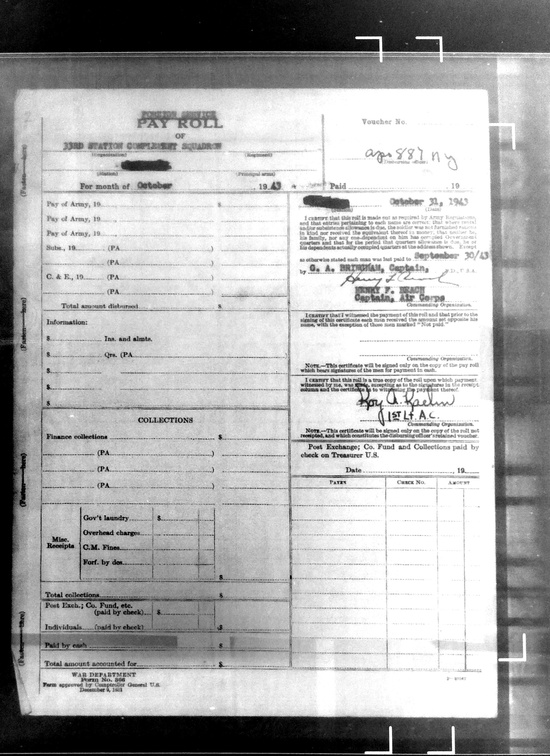 FOREIGN SERVICE
PAY ROLL
OF
33RD STATION COMPLEMENT SQUADRON
(Organization) (Regiment)
(Station) (Principal arm)
For month of October, 1943
Voucher No.
apo 887 NY
(Disbursing office)
Paid, 19
Pay of Army, 19 $
Pay of Army, 19
Pay of Army, 19
Subs., 19 (PA )
(PA )
C. & E., 19 (PA )
(PA )
Total amount disbursed $
Information:
$ Ins. and almts.
$ Qrs. (PA
$
$
$
COLLECTIONS
Finance collections $
(PA )
(PA )
(PA )
Misc. Receipts
Gov't laundry $
Overhead charges
C.M. Fines
Forf. by des.
$
Total collections $
Post Exch.; Co. Fund, etc.
(paid by check) $
Individuals (paid by check) $
Paid by cash $
Total amount accounted for $
WAR DEPARTMENT
Form No. 366
Form approved by Comptroller General U.S.
December 8, 1931
October 31, 1943
(Date)
I CERTIFY that this roll is made out as required by Army Regulations,
as otherwise stated each man was last paid to September 30/43
by G. A. BRINGHAM, Captain,
HENRY F. BEACH
Captain, Air Corps
Commanding Organization.
I CERTIFY that I witnessed the payment of this roll and that prior to the
signing of this certificate each man received the amount set opposite his
name, with the exception of those men marked "Not paid."
Commanding Organization.
NOTE.—This certificate will be signed only on the copy of the pay roll
which bears signatures of the men for payment in cash.
I CERTIFY that this roll is a true copy of the roll upon which payment
witnessed by me, was made, excepting as to the signatures in the receipt
column and the certificate as to witnessing the payment thereof.
1st Lt. A.C.
Commanding Organization.
NOTE.—This certificate will be signed only on the copy of the roll not
receipted, and which constitutes the disbursing officer's retained voucher.
Post Exchange; Co. Fund and Collections paid by
check on Treasurer U.S.
Date, 19
PAYEE CHECK NO. AMOUNT